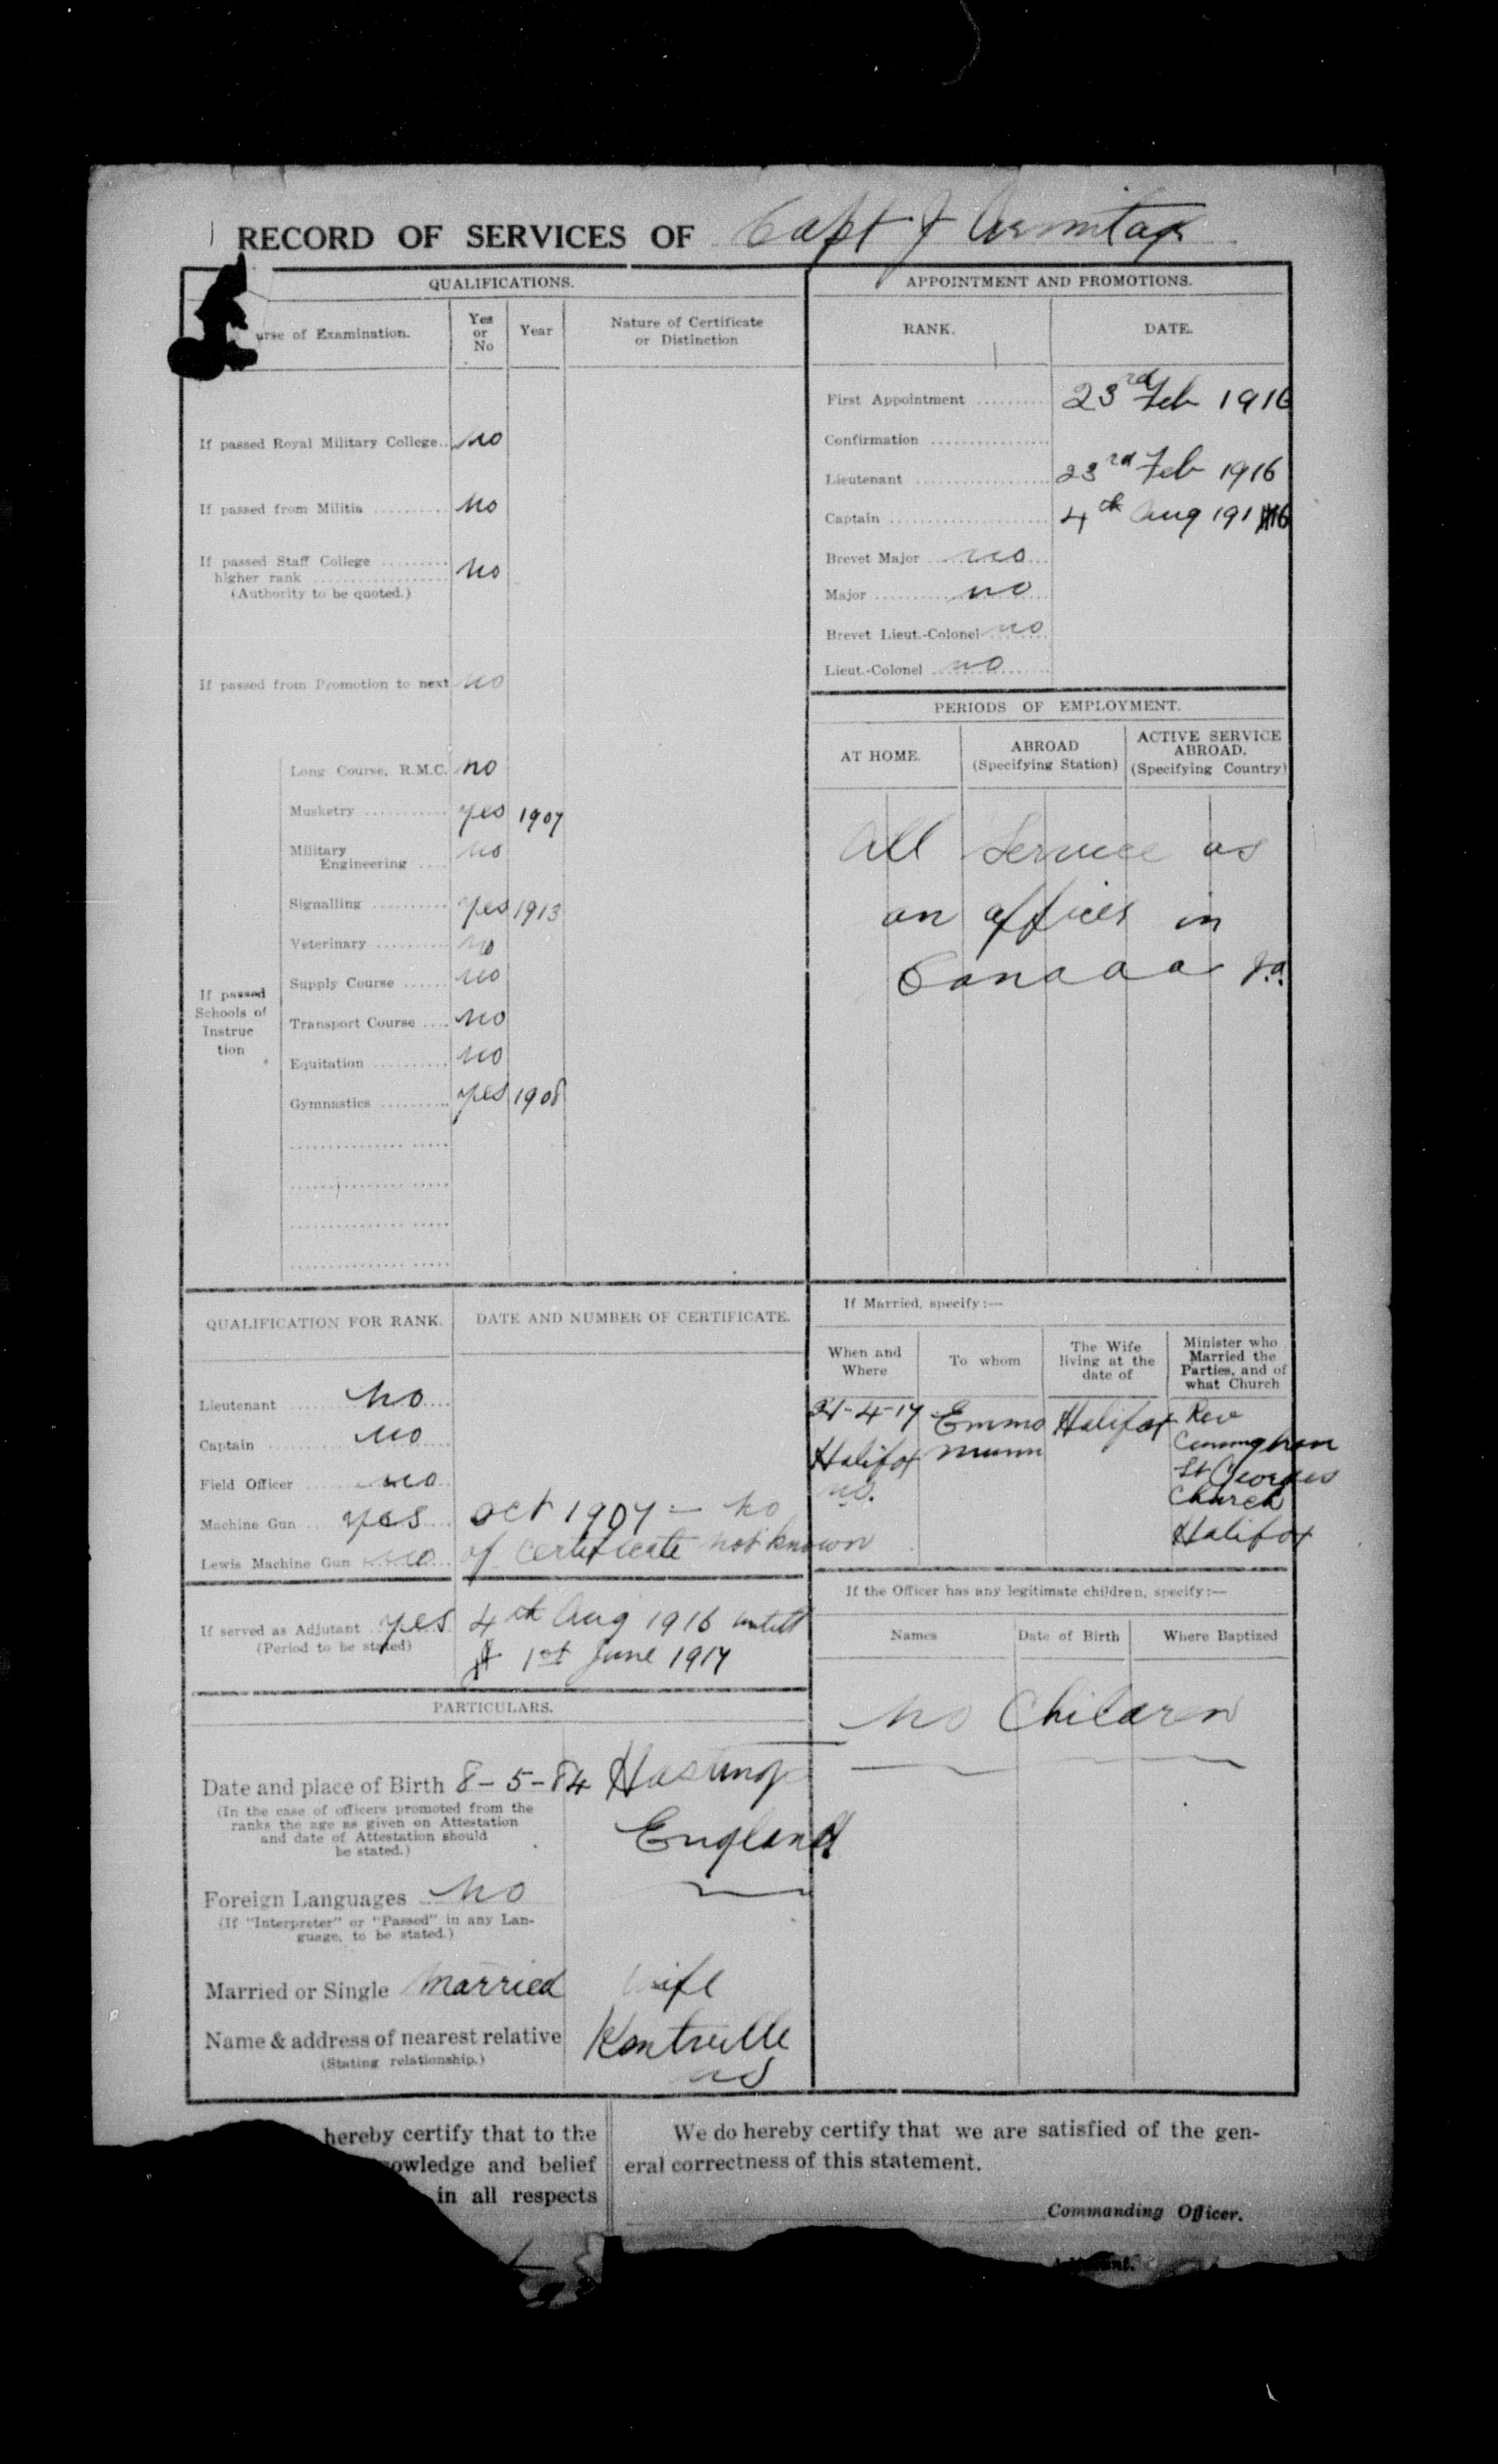 RECORD OF SERVICES OF Capt J Armitage
QUALIFICATIONS.
urse of Examination.
Yes or No
Year
Nature of Certificate or Distinction
If passed Royal Military College.. no
If passed from Militia .......... no
If passed Staff College .........
higher rank .................. no
(Authority to be quoted.)
If passed from Promotion to next no
If passed Schools of Instruc tion
Long Course, R.M.C. no
Musketry ........... yes 1907
Military
Engineering .... no
Signalling .......... yes 1913
Veterinary ......... no
Supply Course ...... no
Transport Course .... no
Equitation .......... no
Gymnastics .......... yes 1908
APPOINTMENT AND PROMOTIONS.
RANK.
DATE.
First Appointment .......... 23rd Feb 1916
Confirmation ................
Lieutenant .................. 23rd Feb 1916
Captain ...................... 4th Aug 1916
Brevet Major .. no
Major .......... no
Brevet Lieut.-Colonel no
Lieut.-Colonel .. no
PERIODS OF EMPLOYMENT.
AT HOME.
ABROAD
(Specifying Station)
ACTIVE SERVICE
ABROAD.
(Specifying Country)
All Service as
an officer in
Canada J.A.
QUALIFICATION FOR RANK.
DATE AND NUMBER OF CERTIFICATE.
Lieutenant ...... no
Captain ......... no
Field Officer ...... no
Machine Gun ... yes oct 1907 – No
Lewis Machine Gun no of certificate not known
If served as Adjutant .. yes 4th Aug 1916 untill
(Period to be stated) 1st June 1917
If Married, specify:—
When and
Where
To whom
The Wife
living at the
date of
Minister who
Married the
Parties, and of
what Church
21-4-17 Emma Halifax Rev
Halifax Munn
NS.
St Georges
Church
Halifax
If the Officer has any legitimate children, specify:—
Names
Date of Birth
Where Baptized
No Childern
PARTICULARS.
Date and place of Birth 8-5-84 Hastings
(In the case of officers promoted from the
ranks the age as given on Attestation
and date of Attestation should
be stated.)
England
Foreign Languages .. No
(If "Interpreter" or "Passed" in any Lan-
guage, to be stated.)
Married or Single Married wife
Name & address of nearest relative Kentville
(Stating relationship.) NS
hereby certify that to the
owledge and belief
in all respects
We do hereby certify that we are satisfied of the gen-
eral correctness of this statement.
Commanding Officer.